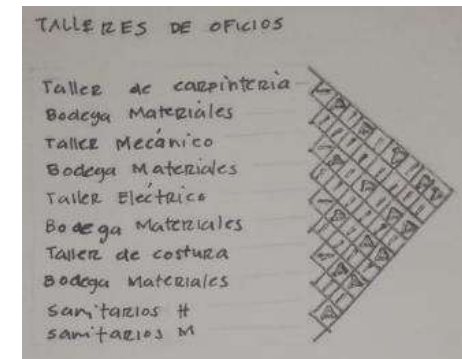 TALLERES DE OFICIOS
Taller de carpintería
Bodega Materiales
Taller Mecánico
Bodega Materiales
Taller Eléctrico
Bodega Materiales
Taller de costura
Bodega Materiales
Sanitarios H
Sanitarios M